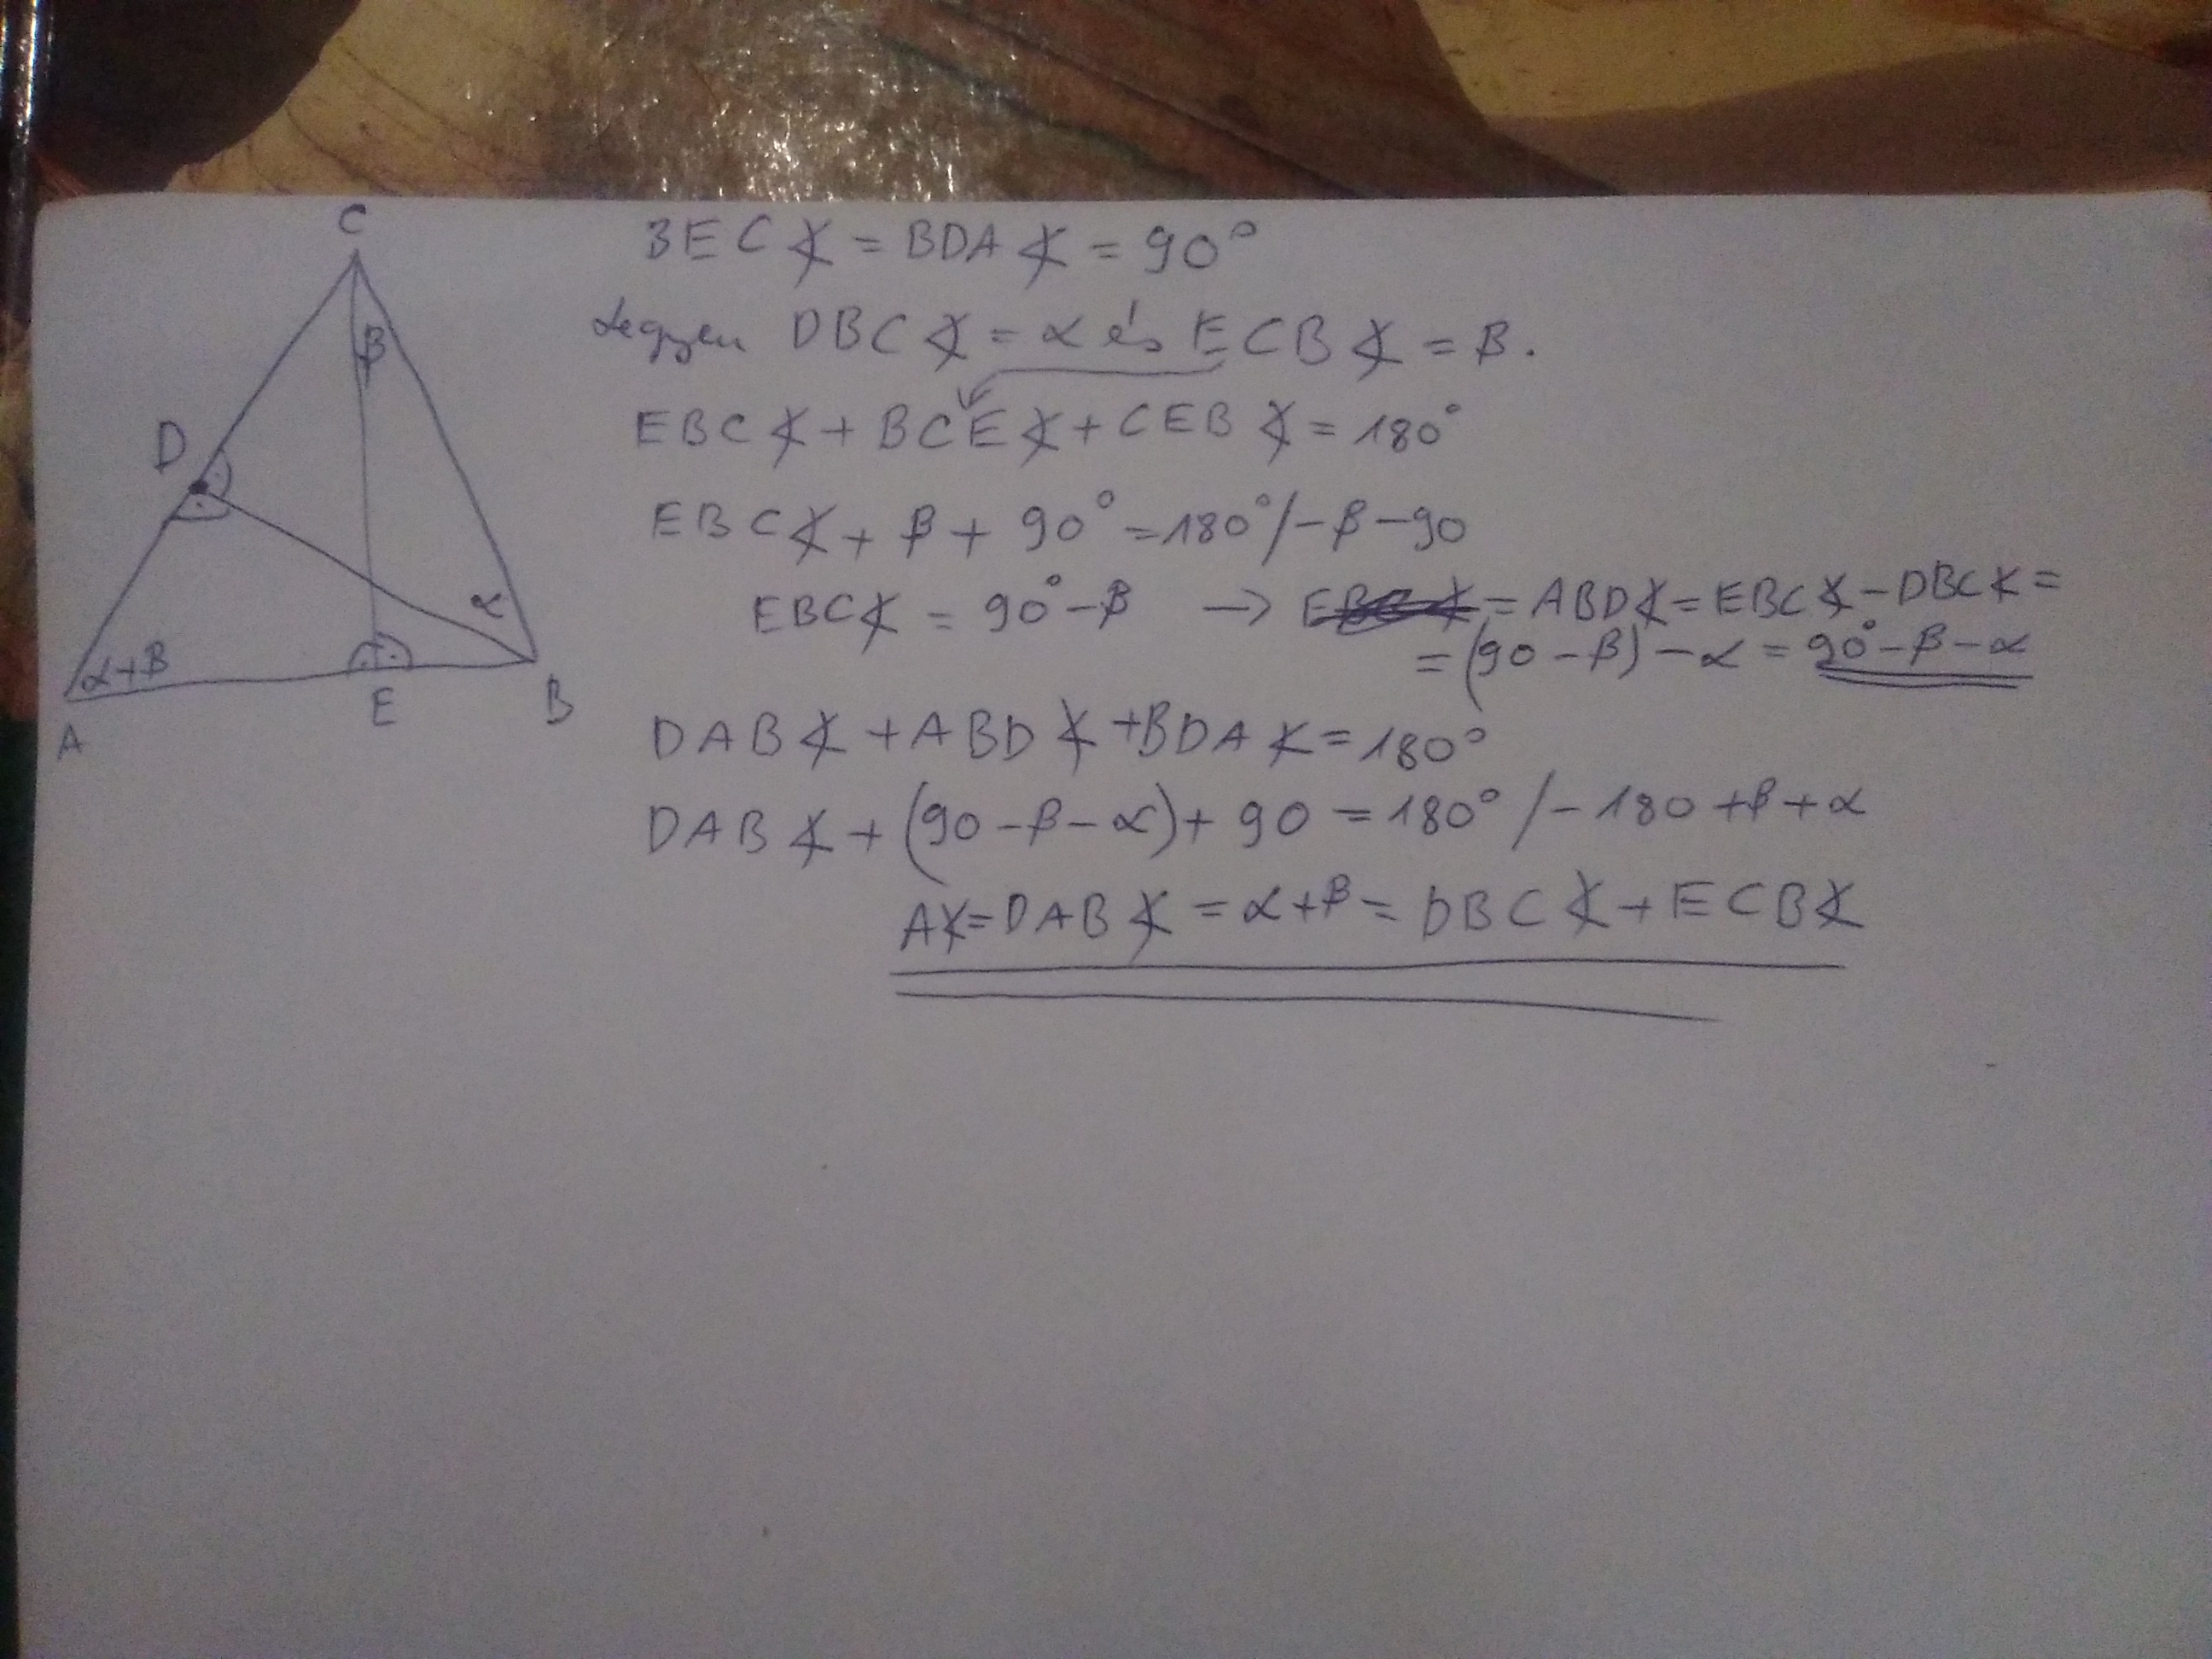 C
β
D
α
α+β
A
E
B
BEC∢ = BDA∢ = 90°
Legyen DBC∢ = α és ECB∢ = β.
EBC∢ + BCE∢ + CEB∢ = 180°
EBC∢ + β + 90° = 180° /-β-90
EBC∢ = 90°-β → = ABD∢ = EBC∢ - DBC∢ =
= (90-β) - α = 90°-β-α
DAB∢ + ABD∢ + BDA∢ = 180°
DAB∢ + (90-β-α) + 90 = 180° /-180+β+α
A∢ = DAB∢ = α+β = DBC∢ + ECB∢